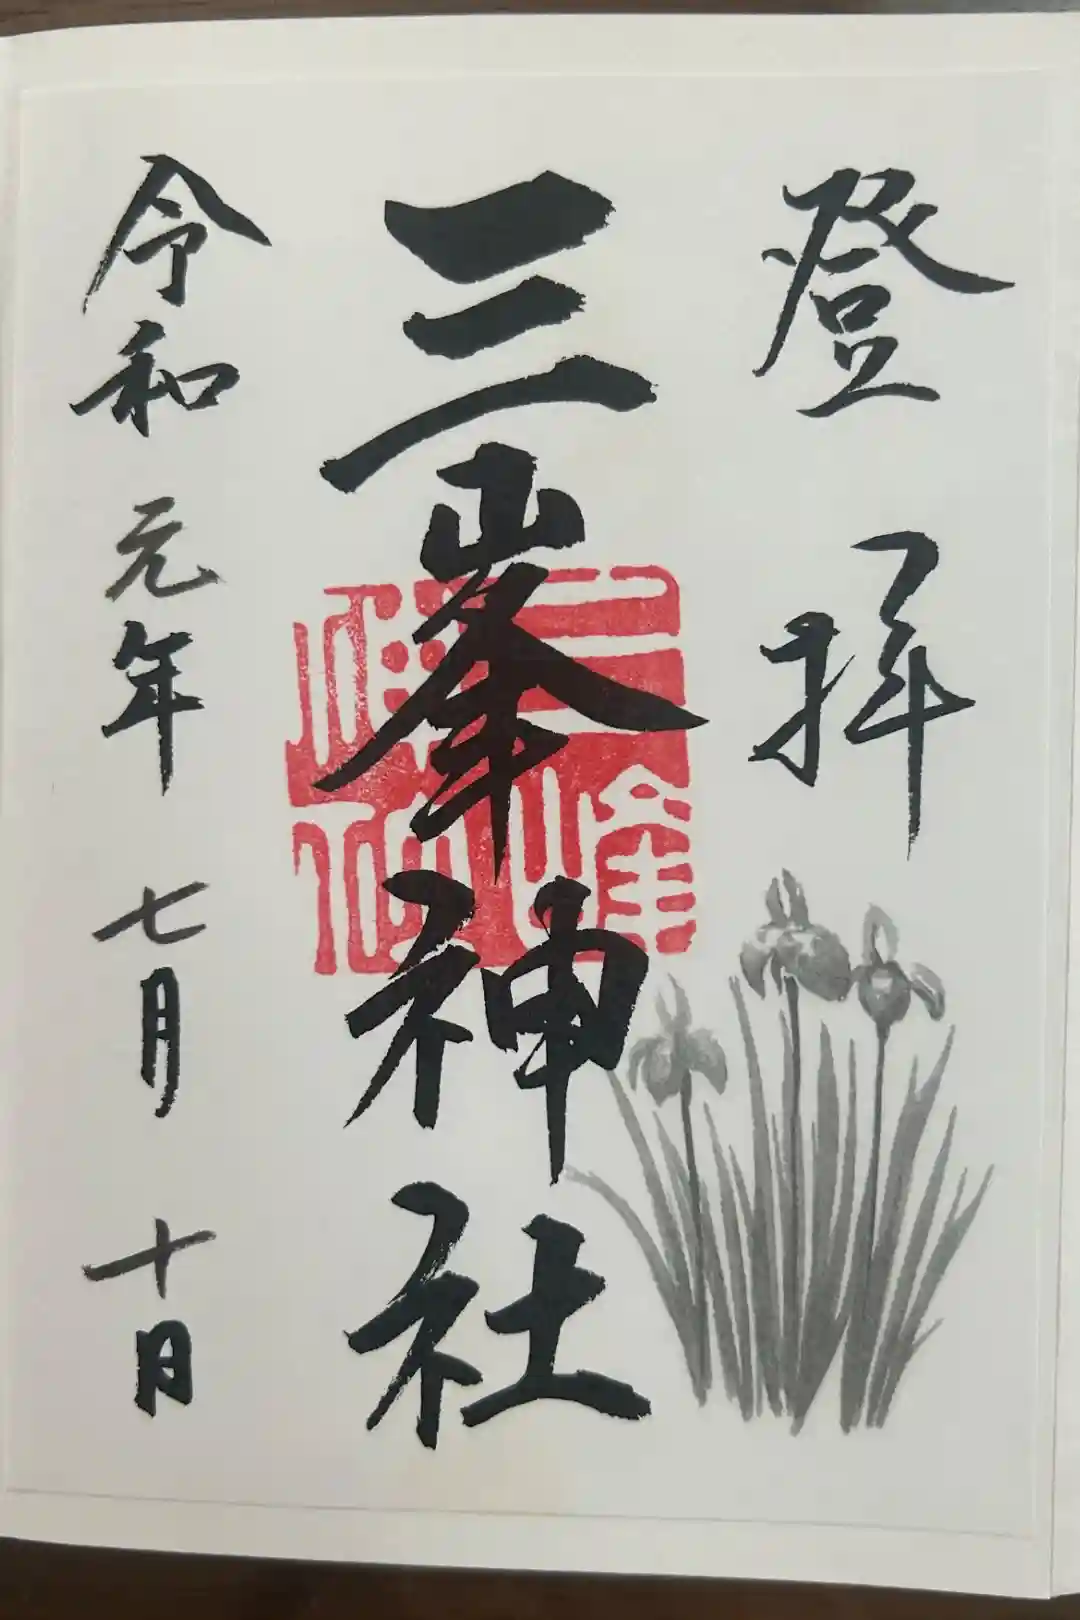 登拝
三峯神社
三峰神社
令和元年七月十日